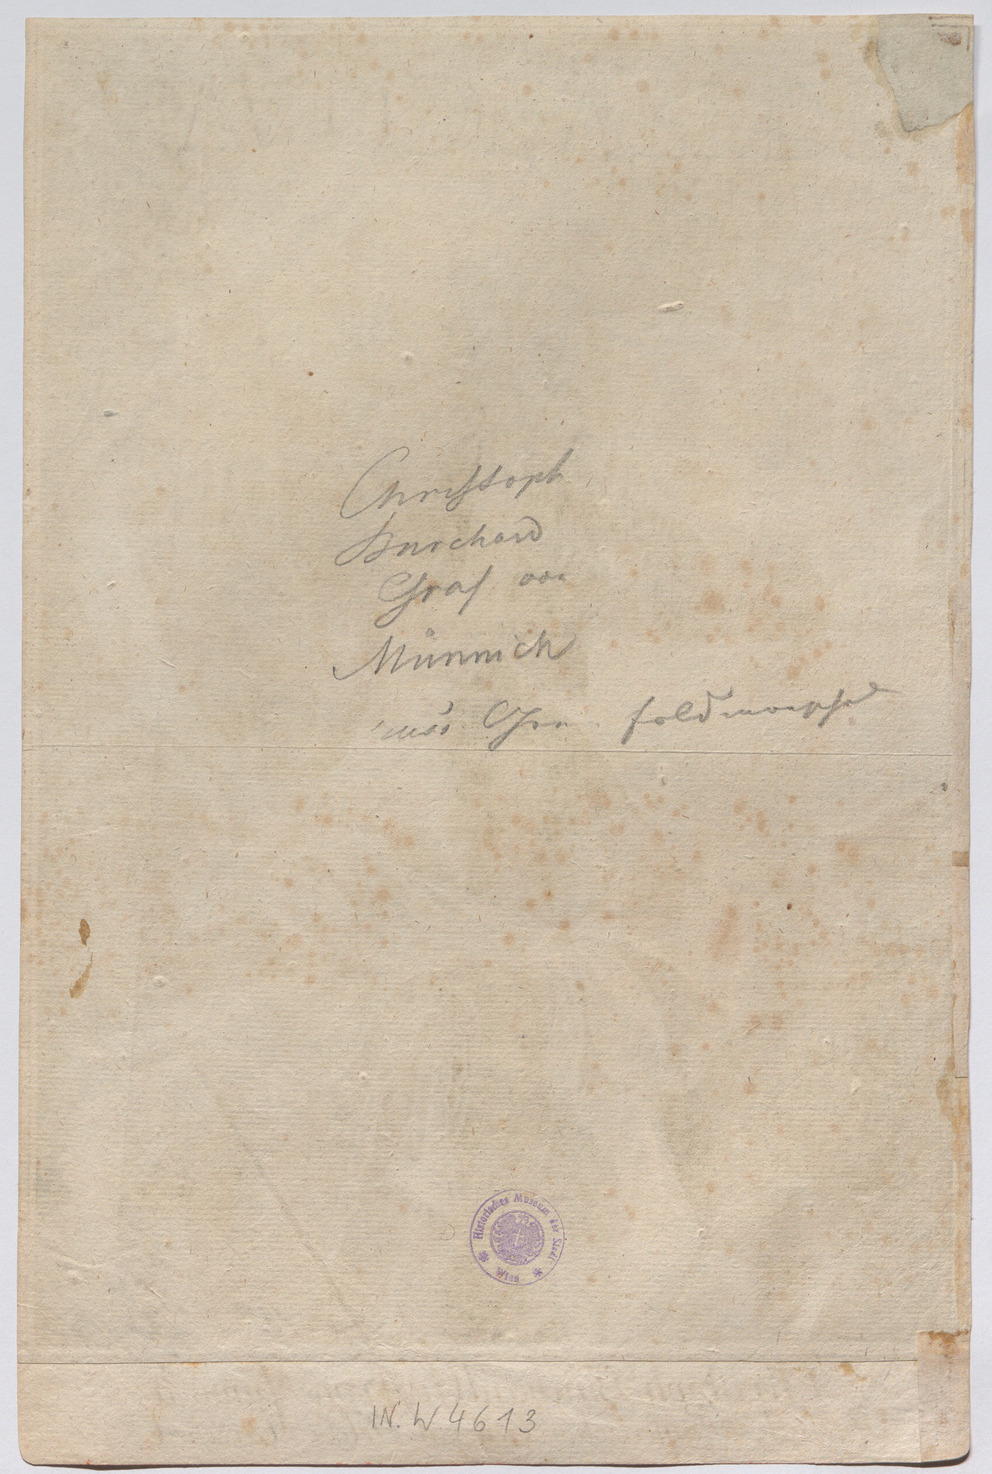 Christoph
Burchard
Graf von
Münnich
Gen. feldmarschal
Historisches Museum der Stadt Wien
IN. W 4613